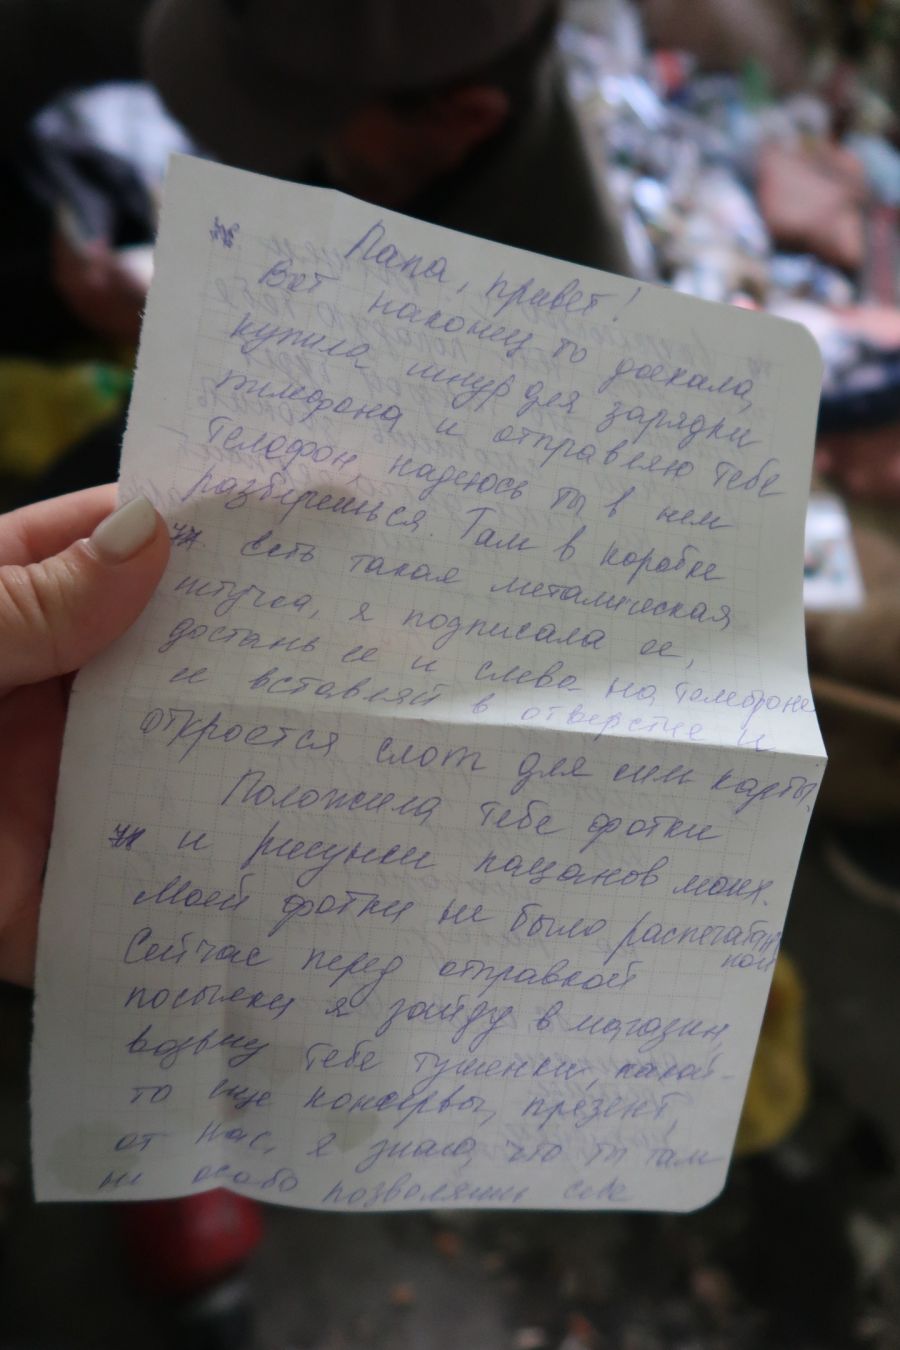 Папа, привет!
Вот наконец то доехала,
купила шнур для зарядки
тилефона и отправляю тебе
Телефон надеюсь ты в нем
разберешься. Там в коробке
есть такая металическая
штучка, я подписала ее,
достань ее и слева на телефоне
ее вставляй в отверстие и
откроется слот для сим карты.
Положила тебе фотки
и рисунки пацанов моих.
Моей фотки не было распечатанной
Сейчас перед отправкой
посылки я зайду в магазин,
возьму тебе тушенки, какой-
то еще консервы, презент
от нас, я знаю, что ты там
не особо позволяешь себе